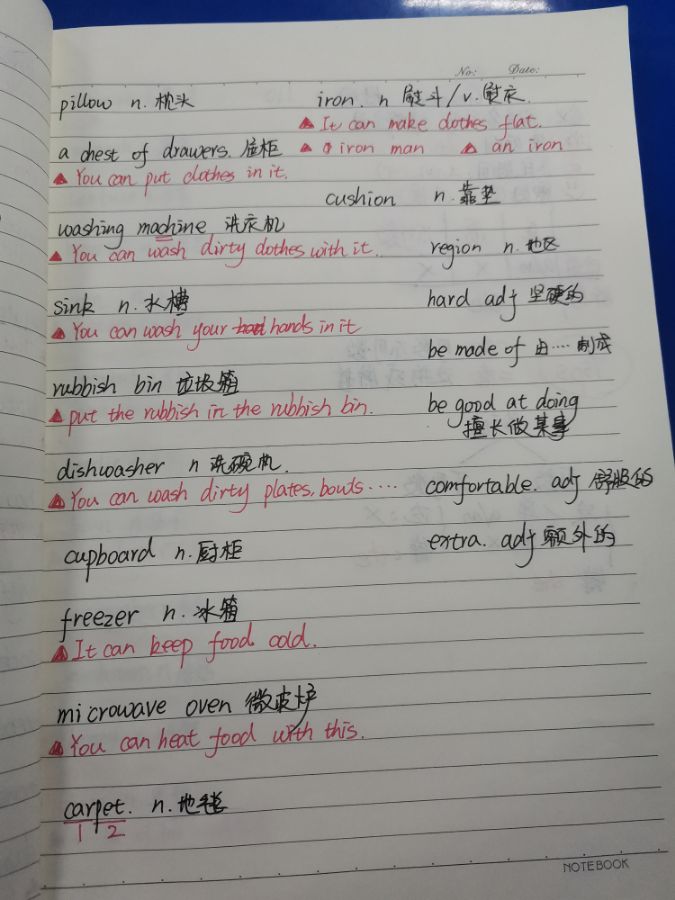 No: Date:
pillow n. 枕头
a chest of drawers. 屉柜
You can put clothes in it.
washing machine 洗衣机
You can wash dirty clothes with it.
sink n. 水槽
You can wash your hands in it
rubbish bin 垃圾箱
put the rubbish in the rubbish bin.
dishwasher n 洗碗机.
You can wash dirty plates, bowls ····
cupboard n. 厨柜
freezer n. 冰箱
It can keep food cold.
microwave oven 微波炉
You can heat food with this.
carpet. n. 地毯
1 2
iron. n 熨斗/v. 熨衣.
It can make clothes flat.
iron man an iron
cushion n. 靠垫
region n. 地区
hard adj 坚硬的
be made of 由···· 制成
be good at doing
擅长做某事
comfortable. adj 舒服的
extra. adj 额外的
NOTEBOOK